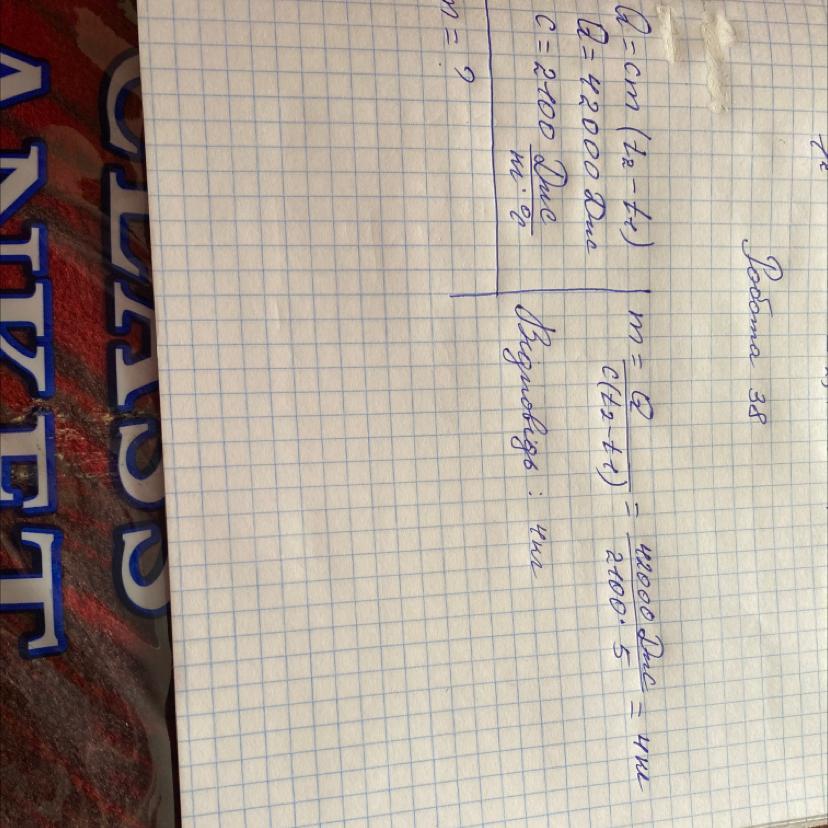 Робота 38
Q = cm (t₂ - t₁)
Q = 42000 Дж
c = 2100 Дж/кг·°С
m = ?
m = Q/c(t₂ - t₁) = 42000 Дж/2100·5 = 4 кг
Відповідь: 4 кг
CLASS
ANKET